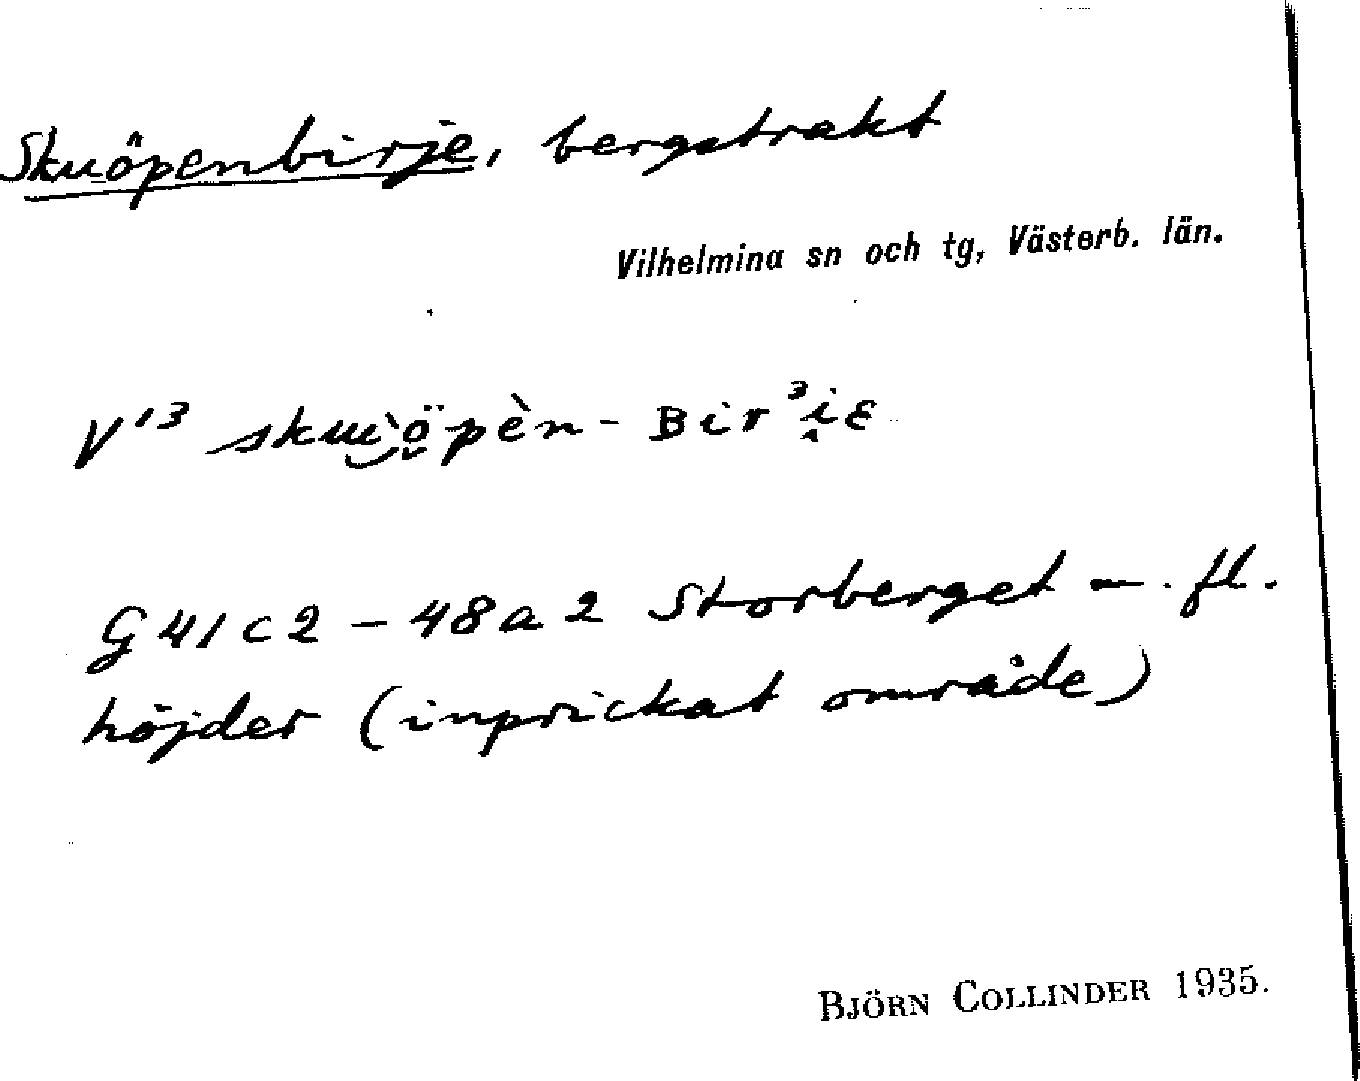 Skuöpenbirje, bergstrakt
Vilhelmina sn och tg, Västerb. län.
V13 skuöpèn-Bir³i̭ɛ
G41c2-48a2 Storberget m. fl.
höjder (inprickat område)
BJÖRN COLLINDER 1935.